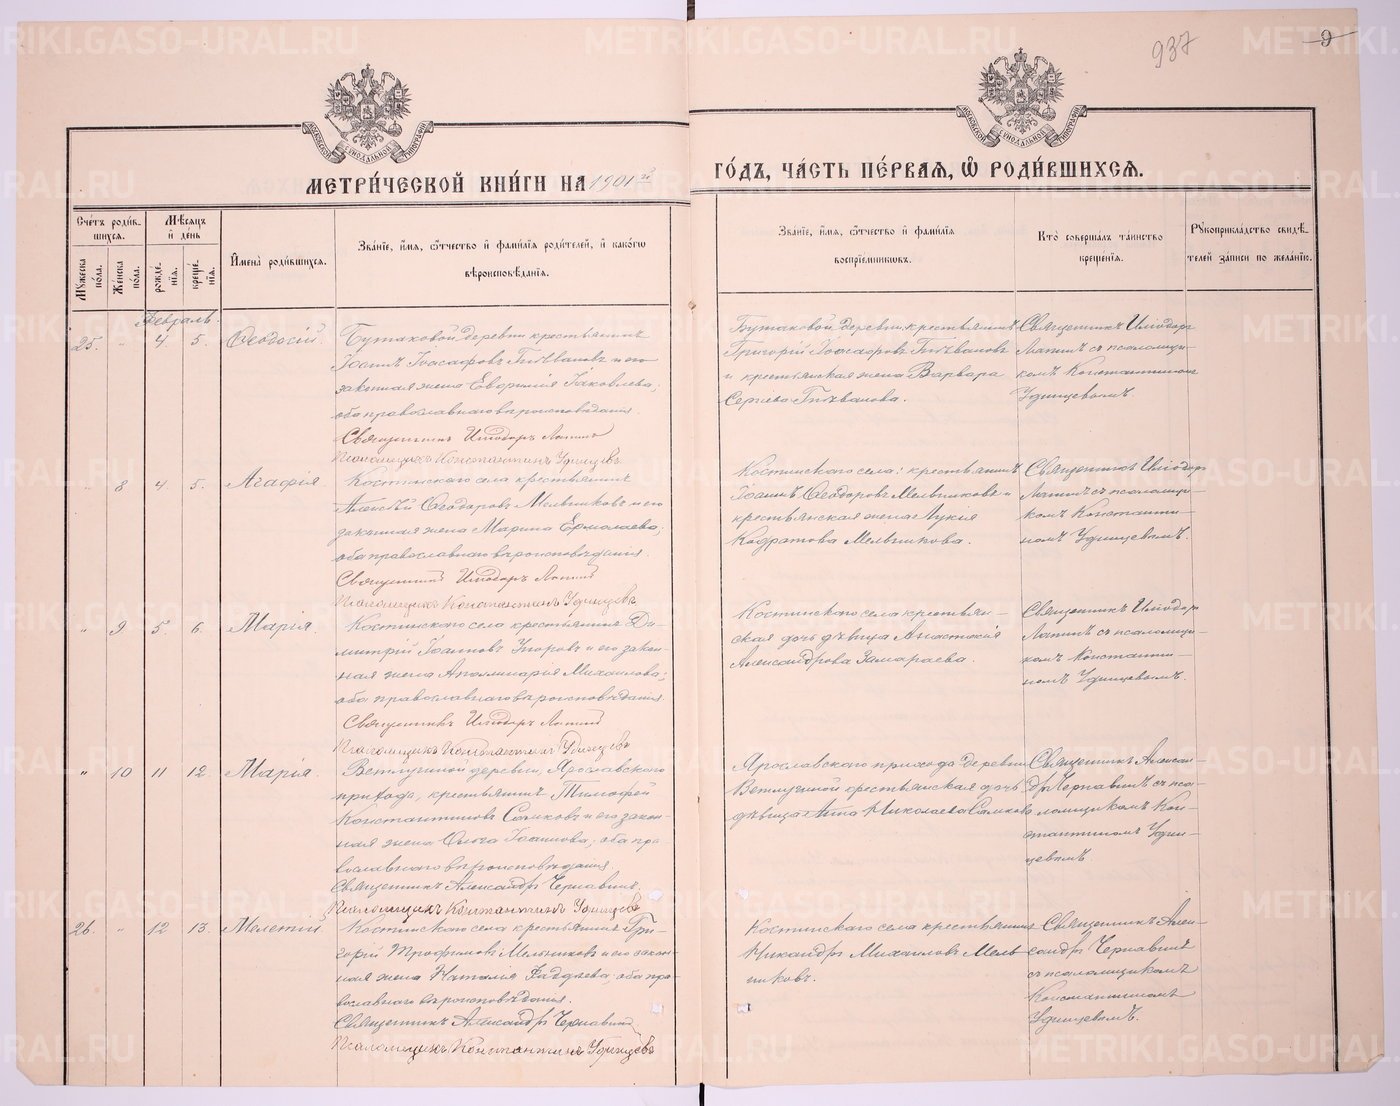 937
9
МЕТРИ́ЧЕСКОЙ КНИ́ГИ НА 1901 й
ГО́ДЪ, ЧА́СТЬ ПЕ́РВАЯ, Ѽ РОДИ́ВШИХСЯ.
Сче́тъ роди́в-
шихся.
Мужеска по́ла.
Же́нска по́ла.
Мѣ́сяцъ и де́нь
рожде́нія.
креще́нія.
И҆мена̀ роди́вшихся.
Зва́ніе, и҆́мя, ѻ҆́тчество и҆ фами́лія роди́телей, и҆ како́гѡ
вѣроисповѣ́данія.
Зва́ніе, и҆́мя, ѻ҆́тчество и҆ фами́лія
воспріе́мниковъ.
Кто̀ соверша́лъ та́инство
креще́нія.
Рꙋкоприкла́дство свидѣ́-
телей за́писи по жела́нію.
Февраль.
25. " 4. 5. Ѳеодосій.
Бутаковой деревни крестьянинъ
Іоаннъ Іоасафовъ Пѣвановъ и его
законная жена Евфимія Іаковлева;
оба православнаго вѣроисповѣданія.
Священникъ Илиодоръ Лапинъ
Псаломщикъ Константинъ Удинцевъ
Бутаковой деревни, крестьянинъ
Григорій Іоасафовъ Пѣвановъ
и крестьянская жена Варвара
Сергіева Пѣванова.
Священникъ Илиодоръ
Лапинъ съ псаломщи-
комъ Константиномъ
Удинцевымъ.
" 8 4. 5. Агафія
Костинскаго села крестьянинъ
Алексѣй Ѳеодоровъ Мельниковъ и его
законная жена Марина Ермолаева;
оба православнаго вѣроисповѣданія.
Священникъ Илиодоръ Лапинъ
Псаломщикъ Константинъ Удинцевъ
Костинскаго села: крестьянинъ
Іоаннъ Ѳеодоровъ Мельниковъ и
крестьянская жена Лукія
Кодратова Мельникова.
Священникъ Илиодоръ
Лапинъ съ псаломщи-
комъ Константи-
номъ Удинцевымъ.
" 9. 5. 6. Марія.
Костинскаго села крестьянинъ Ди-
митрій Іоанновъ Упоровъ и его закон-
ная жена Аполлинарія Михаилова;
оба православнаго вѣроисповѣданія.
Священникъ Илиодоръ Лапинъ
Псаломщикъ Константинъ Удинцевъ
Костинскаго села крестьян-
ская дочь дѣвица Анастасія
Александрова Замараева.
Священникъ Илиодоръ
Лапинъ съ псаломщи-
комъ Константи-
номъ Удинцевымъ.
" 10 11 12. Марія.
Ветлугиной деревни, Ярославскаго
прихода, крестьянинъ Тимофей
Константиновъ Самковъ и его закон-
ная жена Ольга Іоаннова; оба пра-
вославнаго вѣроисповѣданія.
Священникъ Александръ Чернавинъ.
Псаломщикъ Константинъ Удинцевъ
Ярославскаго прихода деревни
Ветлугиной крестьянская дочь
дѣвица Анна Николаева Самкова
Священникъ Алексан-
дръ Чернавинъ съ пса-
ломщикомъ Кон-
стантиномъ Удин-
цевымъ.
26. " 12 13. Мелетій.
Костинскаго села крестьянинъ Гри-
горій Трофимовъ Мельниковъ и его закон-
ная жена Наталія Фаддеева; оба пра-
вославнаго вѣроисповѣданія.
Священникъ Александръ Чернавинъ
Псаломщикъ Константинъ Удинцевъ
Костинскаго села крестьянинъ
Никандръ Михаиловъ Мель-
никовъ.
Священникъ Алек-
сандръ Чернавинъ
съ псаломщикомъ
Константиномъ
Удинцевымъ.